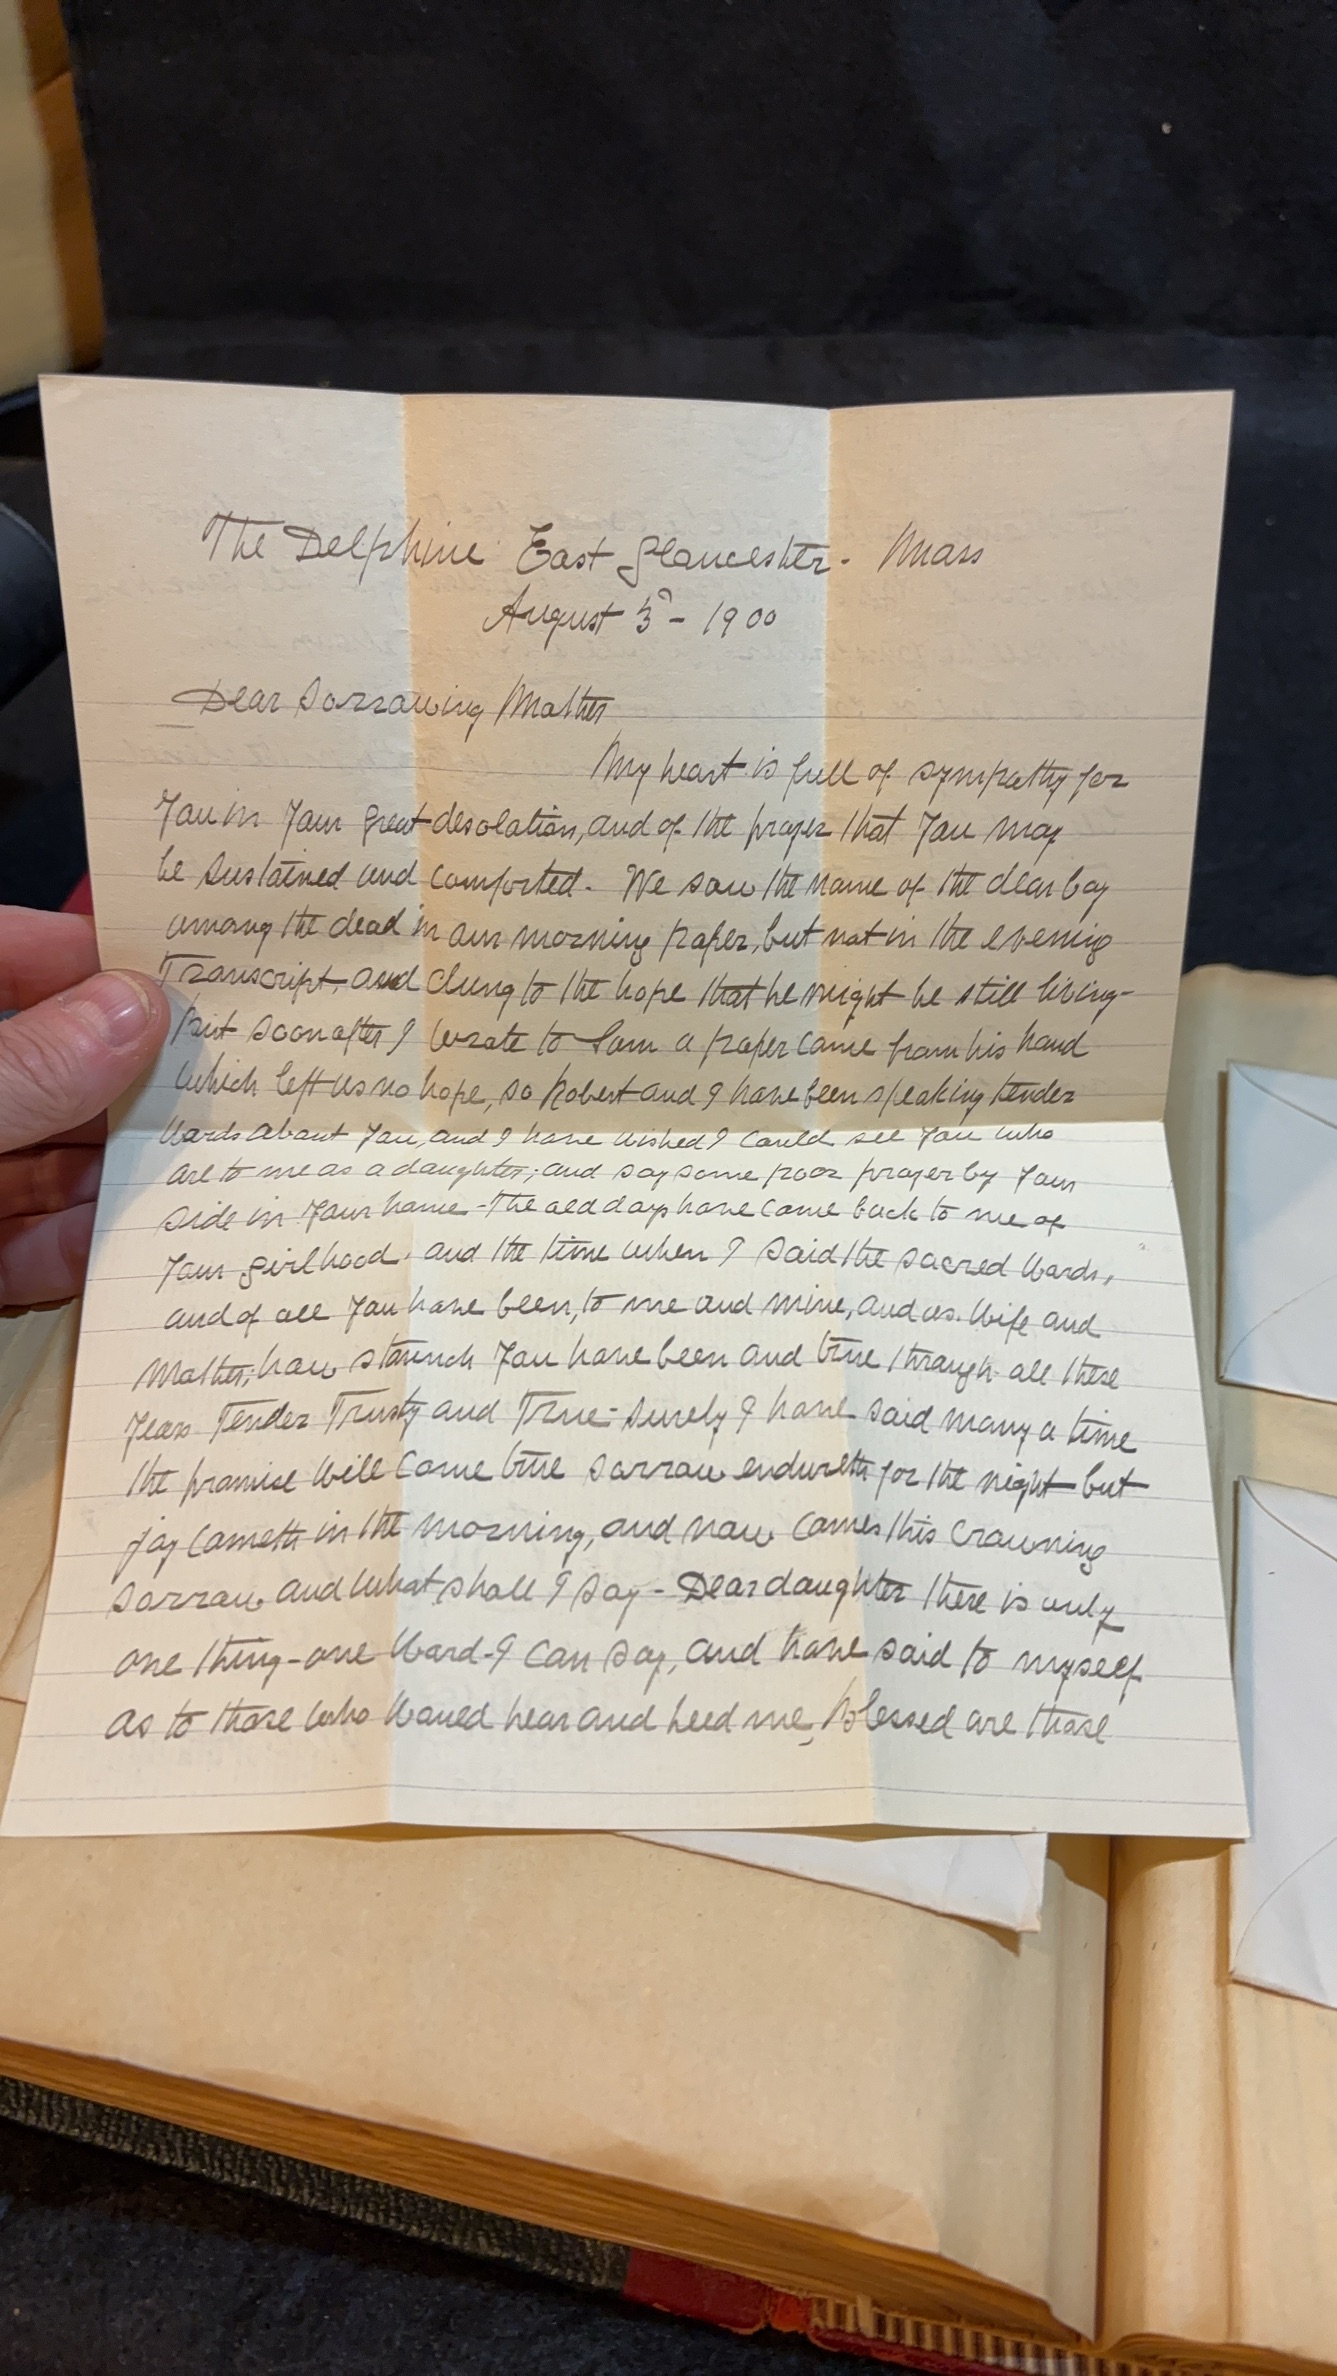 The Delphine East Gloucester - Mass
August 3d - 1900
Dear Sorrowing Mother
My heart is full of sympathy for
You in Your great desolation, and of the prayer that You may
be sustained and comforted - We saw the name of the dear boy
among the dead in our morning paper, but not in the evening
Transcript, and clung to the hope that he might be still living -
But soon after I wrote to Sam a paper came from his hand
which left us no hope, so Robert and I have been speaking tender
words about You, and I have wished I could see You who
are to me as a daughter; and say some poor prayer by Your
side in Your home - The old days have come back to me of
Your girlhood. and the time when I said the sacred words,
and of all You have been, to me and mine, and as wife and
Mother, how staunch You have been and true through all these
Years Tender Trusty and True - Surely I have said many a time
the promise will come true sorrow endureth for the night but
joy cometh in the morning, and now comes this crowning
sorrow and what shall I say - Dear daughter there is only
one thing - one word - I can say, and have said to myself
as to those who would hear and heed me, Blessed are those